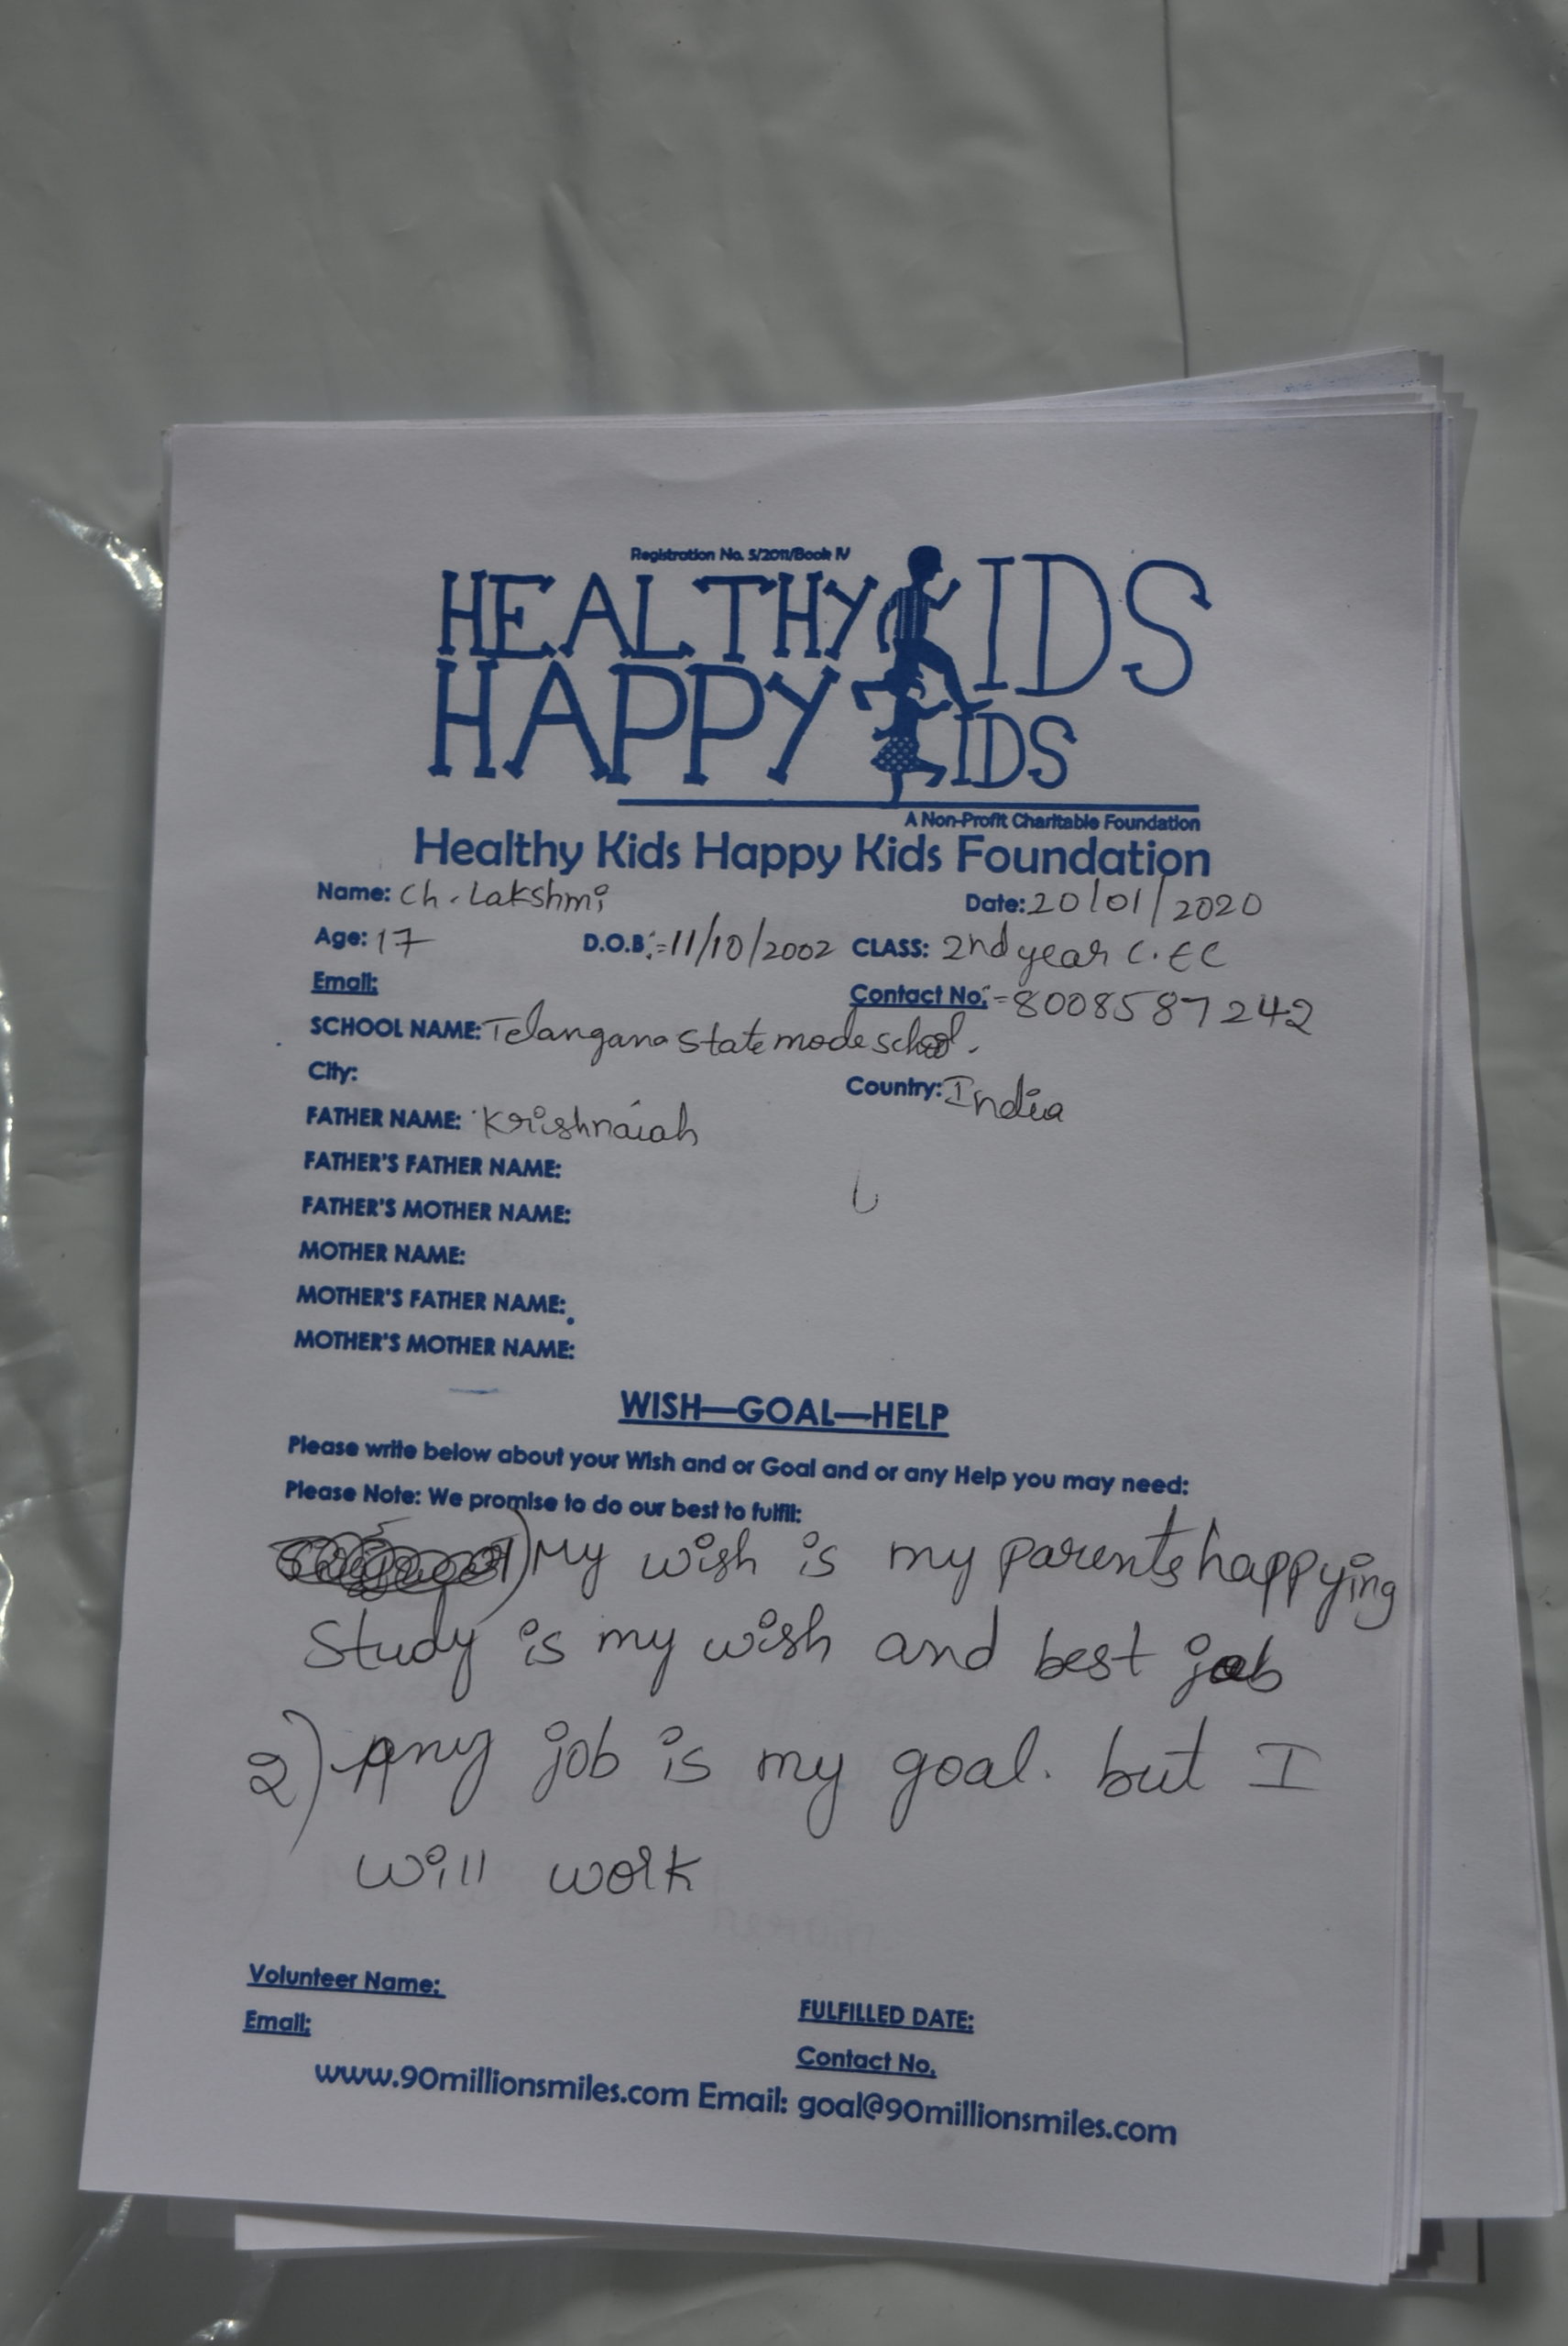 Registration No. 5/2011/Book IV
HEALTHY KIDS
HAPPY KIDS
A Non-Profit Charitable Foundation
Healthy Kids Happy Kids Foundation
Name: Ch. Lakshmi Date: 20/01/2020
Age: 17 D.O.B:- 11/10/2002 CLASS: 2nd year C.EC
Email: Contact No:- 8008587242
SCHOOL NAME: Telangana State mode school.
City: Country: India
FATHER NAME: Krishnaiah
FATHER'S FATHER NAME:
FATHER'S MOTHER NAME:
MOTHER NAME:
MOTHER'S FATHER NAME:
MOTHER'S MOTHER NAME:
WISH—GOAL—HELP
Please write below about your Wish and or Goal and or any Help you may need:
Please Note: We promise to do our best to fulfil:
1) My wish is my parents happying
Study is my wish and best job
2) Any job is my goal. but I
will work
Volunteer Name:
FULFILLED DATE:
Email:
Contact No.
www.90millionsmiles.com Email: goal@90millionsmiles.com